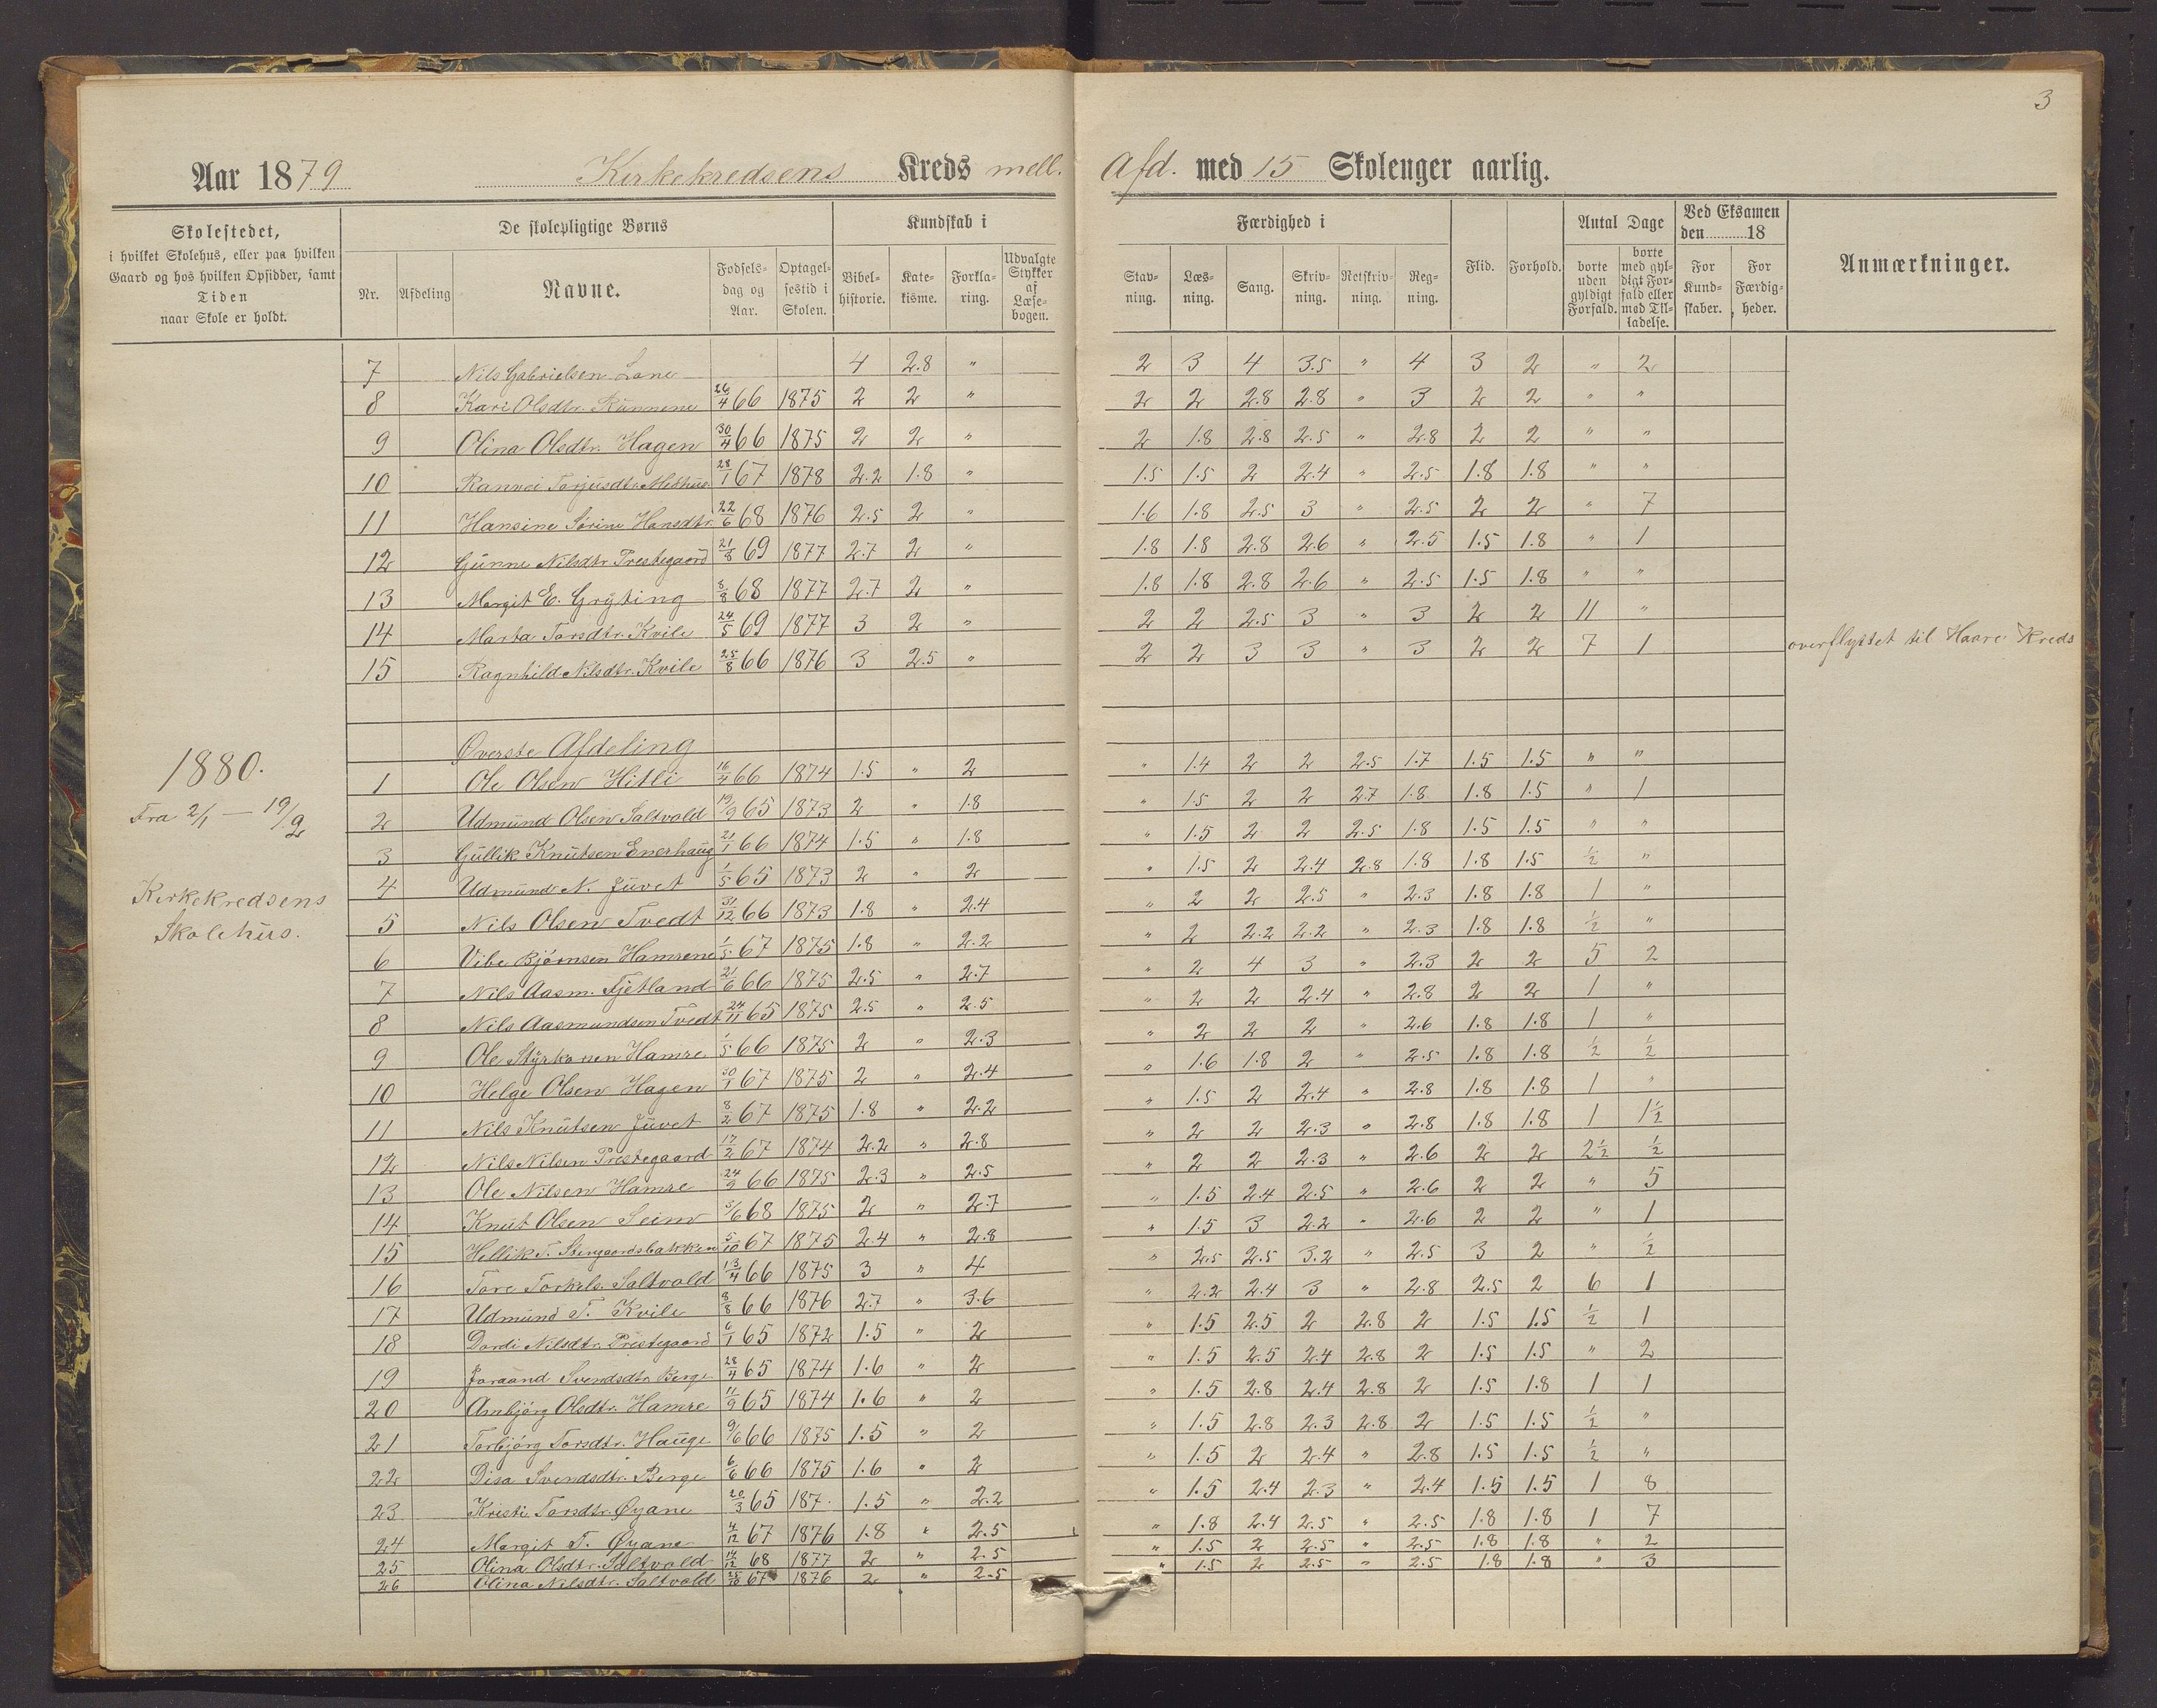 3
Aar 1879 Kirkekredsens Kreds mell. Afd. med 15 Skolenger aarlig.
Skolestedet, i hvilket Skolehus, eller paa hvilken Gaard og hos hvilken Opsidder, samt Tiden naar Skole er holdt.
De skolepligtige Børns
Nr. Afdeling Navne. Fødselsdag og Aar. Optagelsestid i Skolen.
Kundskab i
Bibelhistorie. Katekisme. Forklaring. Udvalgte Stykker af Læsebogen.
Færdighed i
Stavning. Læsning. Sang. Skrivning. Retskrivning. Regning. Flid. Forhold.
Antal Dage
borte uden gyldigt Forfald. borte med gyldigt Forfald eller med Tilladelse.
Ved Eksamen den 18
For Kundskaber. For Færdigheder.
Anmærkninger.
7 Nils Gabrielsen Lone 4 2.8 " 2 3 4 3.5 " 4 3 2 " 2
8 Kari Olsdtr. Runnene 26/4 66 1875 2 2 " 2 2 2.8 2.8 " 3 2 2 " "
9 Olina Olsdtr. Hagen 30/4 66 1875 2 2 " 2 1.8 2.8 2.5 " 2.8 2 2 " "
10 Ranvei Torjusdtr. Methus 28/1 67 1878 2.2 1.8 " 1.5 1.5 2 2.4 " 2.5 1.8 1.8 " "
11 Hansine Sørine Hansdtr. 22/6 68 1876 2.5 2 " 1.6 1.8 2.5 3 " 2.5 2 2 " 7
12 Gunne Nilsdtr Prestegaard 21/8 69 1877 2.7 2 " 1.8 1.8 2.8 2.6 " 2.5 1.5 1.8 " 1
13 Margit E. Gryting 8/8 68 1877 2.7 2 " 1.8 1.8 2.8 2.6 " 2.5 1.5 1.8 " "
14 Marta Torsdtr. Kvile 24/5 69 1877 3 2 " 2 2 2.5 3 " 3 2 2 11 "
15 Ragnhild Nilsdtr. Kvile 25/8 66 1876 3 2.5 " 2 2 3 3 " 3 2 2 7 1 overflyttet til Haare Kreds
Øverste Afdeling
1880.
Fra 2/1 — 19/2
Kirkekredsens
Skolehus.
1 Ole Olsen Hitli 16/4 66 1874 1.5 " 2 " 1.4 2 2 2.5 1.7 1.5 1.5 " "
2 Udmund Olsen Saltvold 19/9 65 1873 2 " 1.8 " 1.5 2 2 2.7 1.8 1.8 1.5 " 1
3 Gullik Knutsen Enerhaug 21/1 66 1874 1.5 " 1.8 " 1.5 2 2 2.5 1.8 1.5 1.5 " "
4 Udmund N. Juvet 1/5 65 1873 2 " 2 " 1.5 2 2.4 2.8 1.8 1.8 1.5 ½ "
5 Nils Olsen Tvedt 31/12 66 1873 1.8 " 2.4 " 2 2 2.5 " 2.3 1.8 1.8 1 "
6 Vibe Bjørnsen Hamrene 1/5 67 1875 1.8 " 2.2 " 2 2.2 2.2 " 2.3 1.8 1.8 ½ "
7 Nils Aasm. Fjetland 21/6 66 1875 2.5 " 2.7 " 2 4 3 " 2.3 2 2 5 2
8 Nils Aasmundsen Tvedt 24/11 65 1875 2.5 " 2.5 " 2 2 2.4 " 2.8 2 2 1 "
9 Ole Styrkonen Hamre 1/5 66 1875 2 " 2.3 " 2 2 2 " 2.6 1.8 1.8 1 "
10 Helge Olsen Hagen 30/1 67 1875 2 " 2.4 " 1.6 1.8 2 " 2.5 1.8 1.8 ½ ½
11 Nils Knutsen Juvet 8/2 67 1875 1.8 " 2.2 " 1.5 2 2.4 " 2.8 1.8 1.8 1 "
12 Nils Nilsen Prestegaard 17/2 67 1874 2.2 " 2.8 " 2 2 2.3 " 2.8 1.8 1.8 1 1½
13 Ole Nilsen Hamre 24/9 66 1875 2.3 " 2.5 " 2 2 2.3 " 2.6 2 2 2½ ½
14 Knut Olsen Seim 3/6 68 1875 2 " 2.7 " 1.5 2.4 2.5 " 2.6 2 2 " 5
15 Hellik T. Stengaardsbakken 5/10 67 1875 2.4 " 2.8 " 1.5 3 2.2 " 2.6 2 2 " 1
16 Tore Torkels. Saltvold 13/4 66 1875 3 " 4 " 2.5 2.5 3.2 " 2.5 3 2 " ½
17 Udmund T. Kvile 8/8 66 1876 2.7 " 3.6 " 2.2 2.4 3 " 2.8 2.5 2 6 1
18 Dordi Nilsdtr. Prestgaard 6/1 65 1872 1.5 " 2 " 1.5 2.5 2 2.8 2 1.5 1.5 ½ 1
19 Joraand Svendsdtr. Berge 28/4 65 1874 1.6 " 2 " 1.5 2.5 2.4 2.8 2 1.5 1.5 " 2
20 Ambjørg Olsdtr. Hamre 11/9 65 1874 1.6 " 2 " 1.5 2.8 2.4 2.8 2 1.5 1.8 1 1
21 Torbjørg Torsdtr. Hauge 9/6 66 1875 1.5 " 2 " 1.5 2.8 2.3 2.8 2 1.5 1.5 ½ "
22 Disa Svendsdtr. Berge 6/6 66 1875 1.6 " 2 " 1.5 2 2.4 " 2.8 1.5 1.5 ½ "
23 Kristi Torsdtr. Øyane 20/3 65 187. 1.5 " 2.2 " 1.5 2.4 2.3 " 2.4 1.5 1.5 1 8
24 Margit T. Øyane 4/12 67 1876 1.8 " 2.5 " 1.8 2.4 2.5 " 2.5 1.8 1.8 1 7
25 Olina Olsdtr. Saltvold 14/12 68 1877 2 " 2.5 " 1.5 2 2.5 " 2.5 1.8 1.8 " 2
26 Olina Nilsdtr. Saltvold 25/10 67 1876 2 " 2.5 " 1.5 2 2.5 " 2.5 1.8 1.8 " 3